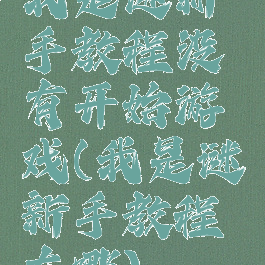 我是谜新
手教程没
有开始游
戏(我是谜
新手教程